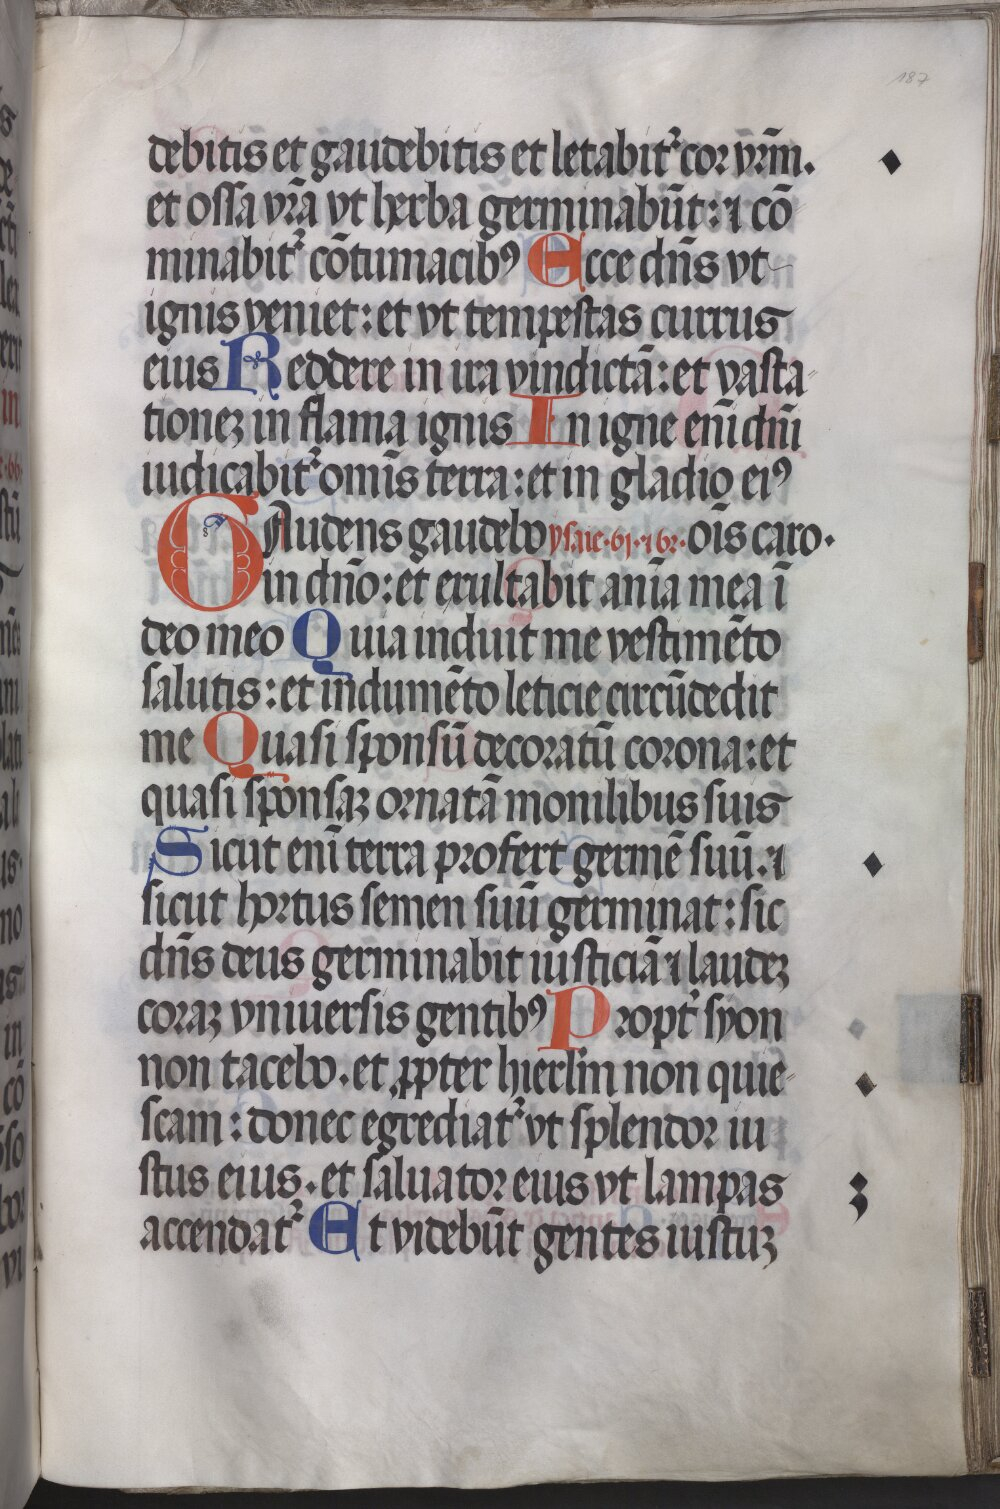 187
debitis et gaudebitis et letabit᷑ cor vr̄m.
et ossa vr̄a vt herba germinabūt: ⁊ cō
minabit᷑ cōtumacibꝰ Ecce dn̄s vt
ignis veniet: et vt tempestas currus
eius Reddere in ira vindictā: et vasta
tioneꝫ in flama ignis In igne eni̅ dn̄i
iudicabit᷑ omīs terra: et in gladio eiꝰ
GAudens gaudebo ysaie.61.⁊ 62. oīs caro.
in dn̄o: et exultabit ani̅a mea ī
deo meo Quia induit me vestimēto
salutis: et indumēto leticie circūdedit
me Quasi sponsū decoratū corona: et
quasi sponsaꝫ ornatā monilibus suis
Sicut eni̅ terra profert germē suū: ⁊
sicut hortus semen suū germinat: sic
dn̄s deus germinabit iusticiā ⁊ laudeꝫ
coraꝫ vniuersis gentibꝰ Propt᷑ syon
non tacebo. et ꝓpter hierl̄m non quie
scam: donec egrediat᷑ vt splendor iu
stus eius. et saluator eius vt lampas
accendat᷑ Et videbūt gentes iustuꝫ